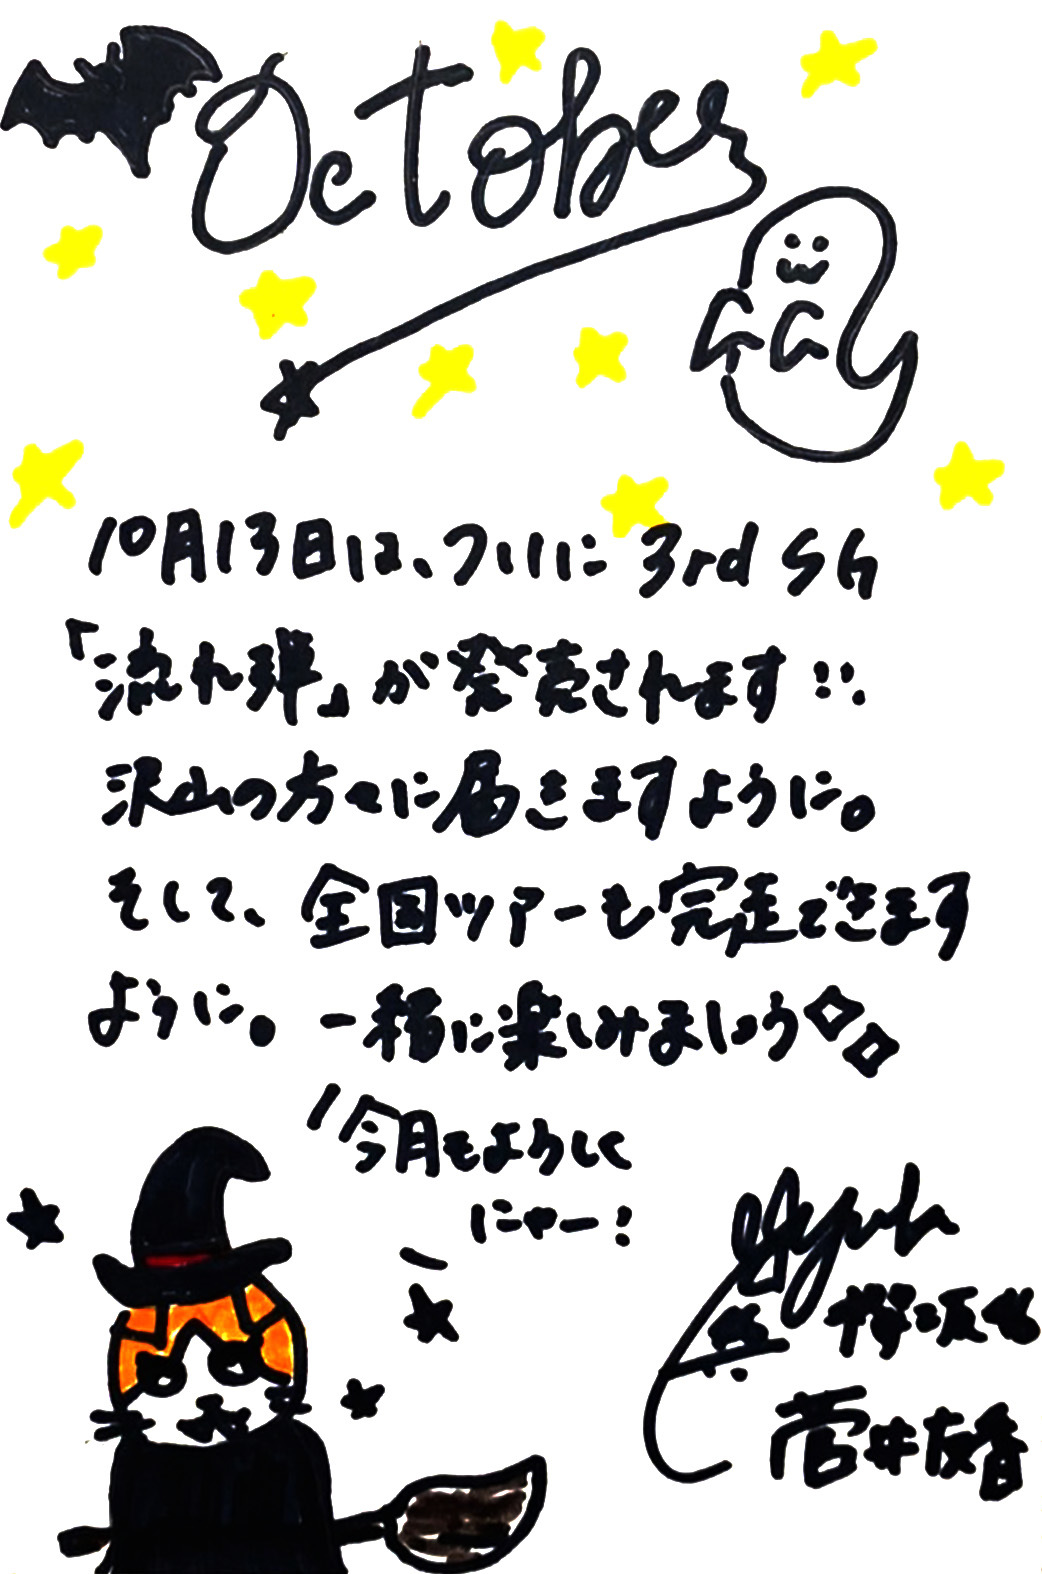 October
10月13日は、ついに 3rd SG
「流れ弾」が発売されます!!
沢山の方々に届きますように。
そして、全国ツアーも完走できます
ように。一緒に楽しみましょう
今月もよろしく
にゃー!
櫻坂46
菅井友香